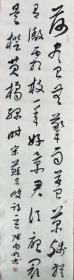 荷尽已无擎雨盖菊残
犹有傲霜枝一年好景君须记最
是橙黄橘绿时 宋苏东坡诗